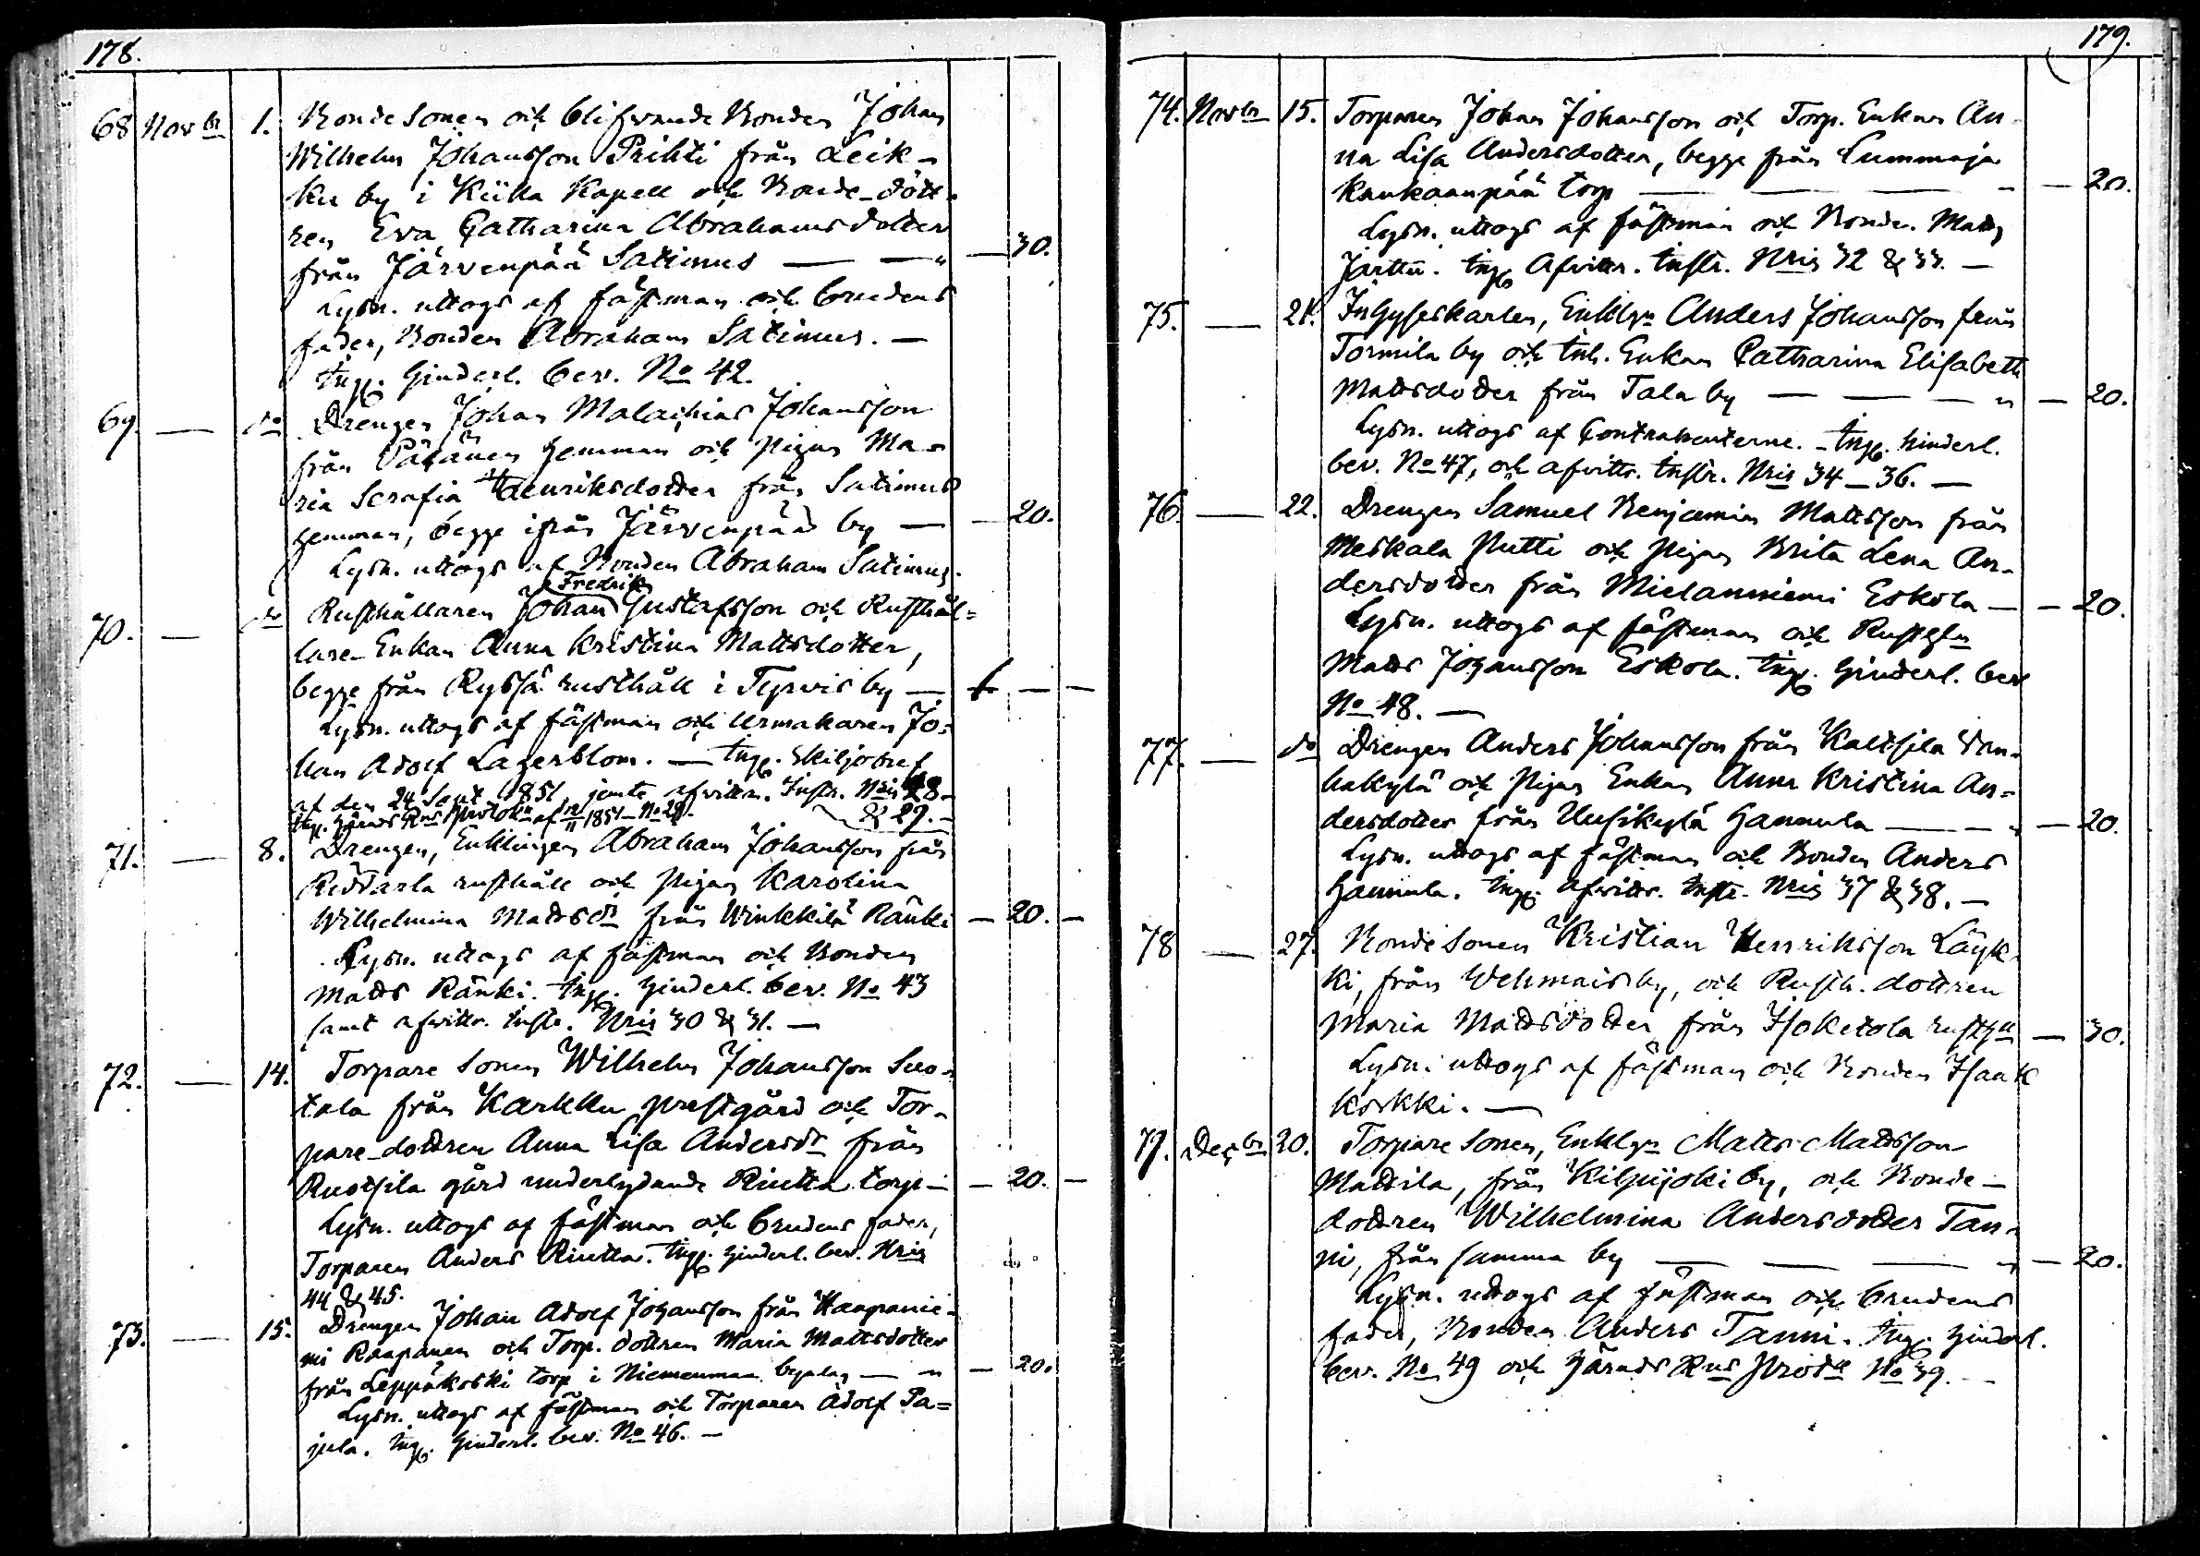 178.
68 Novbr 1. Bondesonen och blifvande Bonden Johan
Wilhelm Johansson Prihti från Leik-
ku by i Kiikka Kapell och Bonde-dött-
ren Eva Catharina Abrahamsdotter
från Järvenpää Satimus — — " — 30.
Lysn. uttogs af fästman och brudens
fader, Bonden Abraham Satimus. —
Ing. hinderl. bev. No 42.
69. — do Drengen Johan Malachias Johansson
från Päkänen hemman och Pigan Ma-
ria Serafia Henriksdotter från Satimus
hemman, begge ifrån Järvenpää by — — 20.
Lysn. uttogs af Bonden Abraham Satimus.
Fredrik
70. — do Rusthållaren Johan Gustafsson och Rusthål-
lare-Enkan Anna Kristina Mattsdotter,
begge från Ryssä rusthåll i Tyrvis by — — —
Lysn. uttogs af fästman och Urmakaren Jo-
han Adolf Lagerblom. — Ing. Skiljobref
af den 24 Sept 1851 jemte afvittr. Instr. Nris 28-
Ing. Härads Rns Protok. af 1851 - No 29. & 29. -
71. — 8. Drengen, Enklingen Abraham Johansson från
Riddarla rusthåll och Pigan Karolina
Wilhelmina Mattsdr från Winkkilä Ränki — 20. —
Lysn. uttogs af fästman och Bonden
Matts Ränki. Ing. hinderl. bev. No 43
samt afvittr. instr. Nris 30 & 31. —
72. — 14. Torpare sonen Wilhelm Johansson Suo-
tala från Karkku prestgård och Tor-
pare-dottren Anna Lisa Andersdr från
Ruotsila gård underlydande Riutta torp — — 20. —
Lysn. uttogs af fästman och brudens fader,
Torparen Anders Riutta. Ing. hinderl. bev. Nris
44 & 45.
73. — 15. Drengen Johan Adolf Johansson från Haapanie-
mi Raapanen och Torp. dottren Maria Mattsdotter
från Leppäkoski torp i Niemenmaa bya — " — 20.
Lysn. uttogs af fästman och Torparen Adolf Pa-
jula. Ing. hinderl. bev. No 46. —
179.
74. Novbr 15. Torparen Johan Johansson och Torp. Enkan An-
na Lisa Andersdotter, begge från Lummaja
Kaukaanpää torp — — — " — 20.
Lysn. uttogs af fästman och Bonden Matts
Järttu. Ing. Afvittr. Instr. Nris 32 & 33. —
75. — 21. Inhyseskarlen, Enklgn Anders Johansson från
Tormila by och Inh. Enkan Catharina Elisabeth
Mattsdotter från Tala by — — — " — 20.
Lysn. uttogs af Contrahenterne. — Ing. hinderl.
bev. No 47, och afvittr. Instr. Nris 34 — 36. —
76. — 22. Drengen Samuel Benjamin Mattsson från
Meskala Putti och Pigan Brita Lena An-
dersdotter från Mielanniemi Eskola — — 20.
Lysn. uttogs af fästman och
Matts Johansson Eskola. Ing. hinderl. bev
No 48. —
77. — do Drengen Anders Johansson från Kaltsila Van-
hakylä och Pigan Enkan Anna Kristina An-
dersdotter från Uusikylä Hannula — — " — 20.
Lysn. uttogs af fästman och Bonden Anders
Hannula. Ing. afvittr. Instr. Nris 37 & 38. —
78 — 27. Bondesonen Kristian Henriksson Läyk-
ki, från Vehmais by, och Rusth. dottren
Maria Mattsdotter från Isoketola — 30.
Lysn. uttogs af fästman och Bonden Isaak
Korkki. —
79. Decbr 20. Torpare sonen, Enklgn Matts Mattsson
Mattila, från Kilpijoki by, och Bonde-
dottren Wilhelmina Andersdotter Tan-
ni, från samma by — — — " — 20.
Lysn. uttogs af fästman och brudens
fader, Bonden Anders Tanni. Ing. hinderl.
bev. No 49 och Härads Rns No 39. —